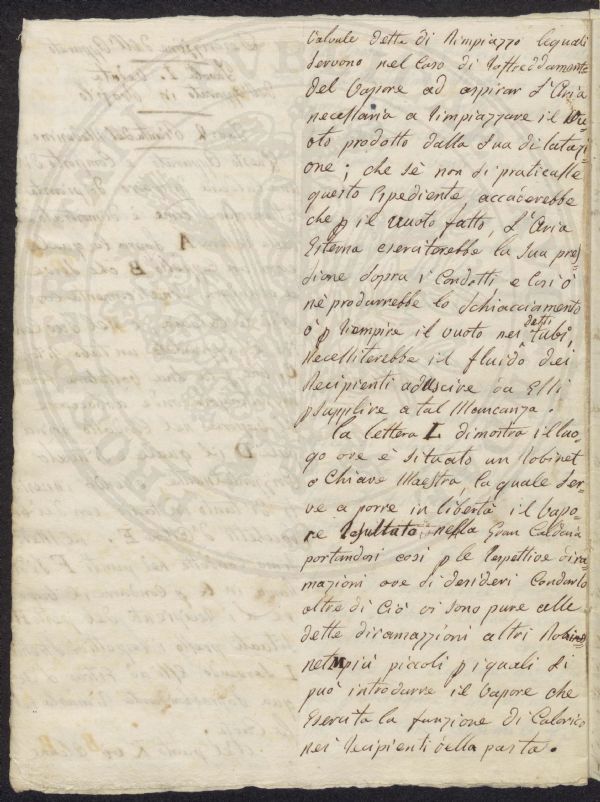 Valvule dette di Rimpiazzo lequali
Servono nel Caso di Raffreddamento
del Vapore ad aspirar L'Aria
necessaria a Rimpiazzare il Vu-
oto prodotto dalla Sua dilatazi-
one; che sè non di praticasse
questo Espediente, accaderebbe
che p il vuoto fatto, L'Aria
Esterna eserciterebbe la Sua pre-
sione sopra i Condotti, e Cosi ò
nè produrrebbe lo Schiacciamento
ò p Riempire il vuoto nei detti tubi,
Necessiterebbe il fluido dei
Recipienti ad uscire da Essi
p supplire a tal Mancanza.
La lettera L dimostra il luo-
go ove è situato un Robinet
o Chiave Maestra, la quale ser-
ve a porre in libertà il Vapo-
re Resultato nella Gran Caldaia
portandosi così p le respettive dira-
mazioni ove si desideri Condurlo
oltre di Ciò vi sono pure alle
dette diramazzioni altri Robi
net più piccoli p i quali si
può introdurre il Vapore che
Esercita la funzione di Calorico
nei Recipienti della pasta.